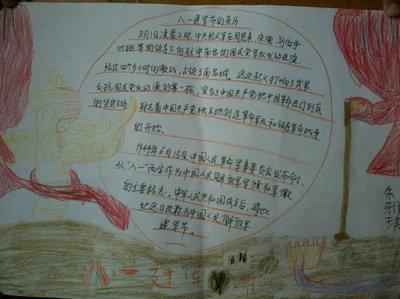 八一建军节的来历
8月1日凌晨2时，中共起义军在周恩来、朱德、刘伯承
叶挺等的领导下向驻守南昌的国民党军队发动进攻
经过四个多小时的激战，占领了南昌城。这次起义打响了武装
反抗国民党反动派的第一枪，宣告了中国共产党把中国革命进行到底
的坚定立场 标志着中国共产党独立地创造革命军队和领导革命战争
的开始。
1949年6月15日，中国人民革命军事委员会发布命令，
以"八一"两字作为中国人民解放军军旗和军徽
的主要标志。中华人民共和国成立后，将此
纪念日改称为中国人民解放军
建军节。
八一建军节